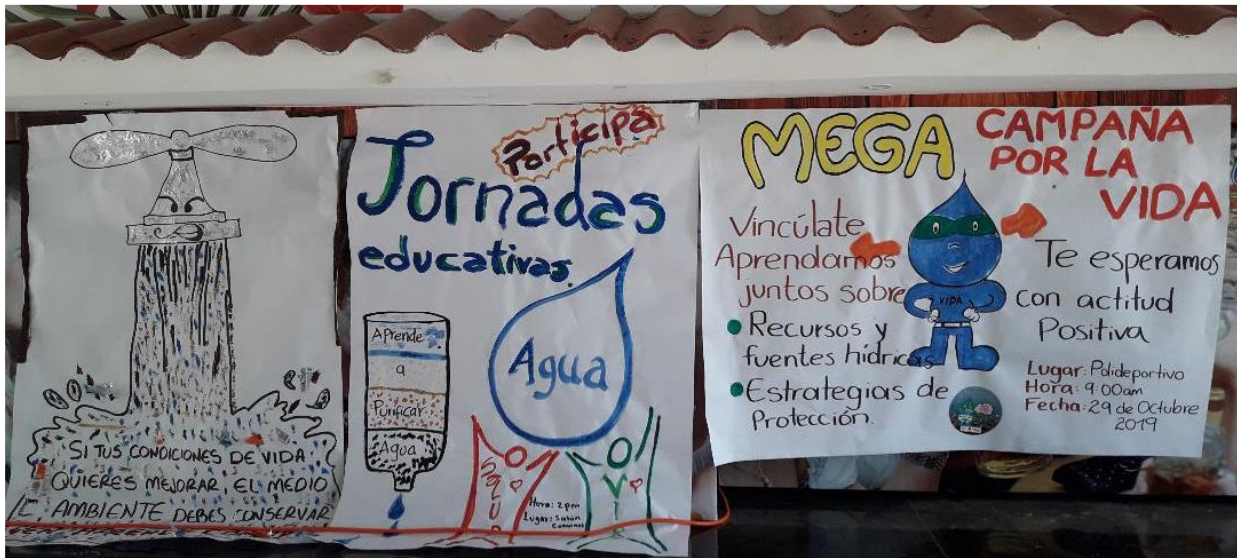 SI TUS CONDICIONES DE VIDA
QUIERES MEJORAR, EL MEDIO
AMBIENTE DEBES CONSERVAR
Participa
Jornadas
educativas
Aprende
a
Purificar
Agua
Agua
Salud
Hora: 2pm
Lugar: Salón
Comunal
MEGA
CAMPAÑA
POR LA
VIDA
Vincúlate
Aprendamos
juntos sobre
Recursos y
fuentes hídricas
Estrategias de
Protección.
VIDA
Te esperamos
con actitud
Positiva
Lugar: Polideportivo
Hora: 9:00am
Fecha: 29 de Octubre
2019